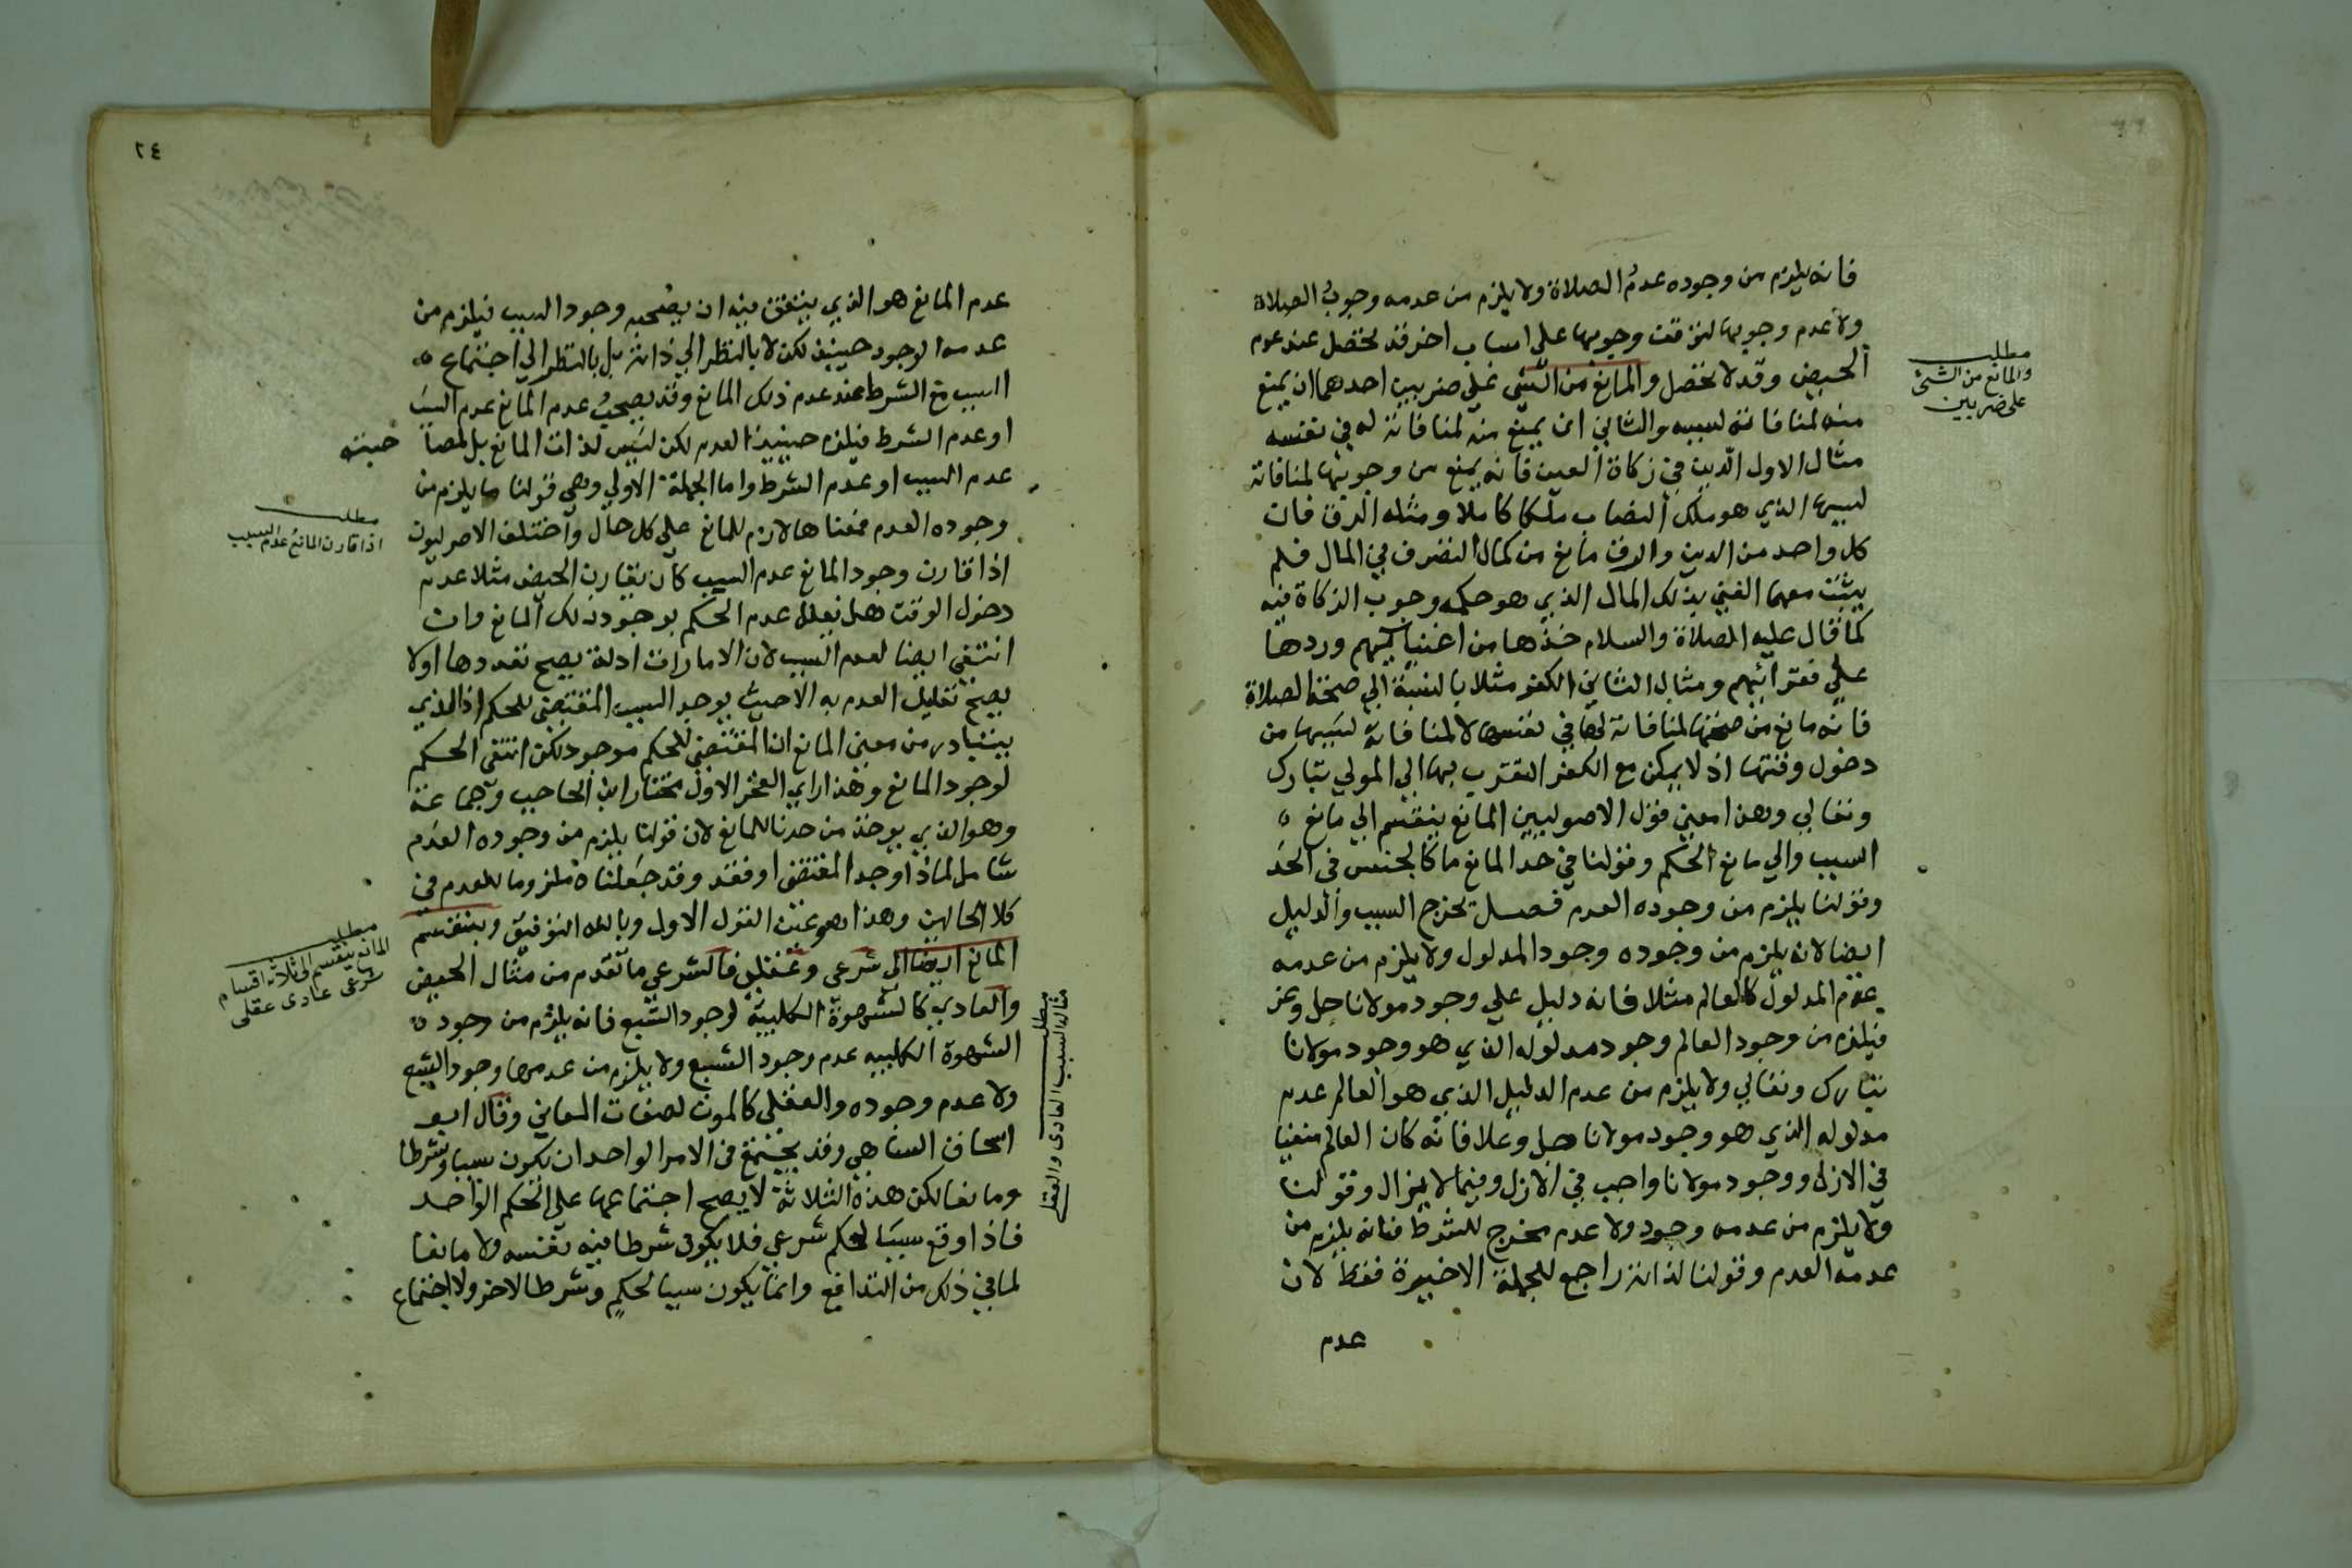 فانه يلزم من وجوده عدمُ الصلاة ولا يلزم من عدمه وجوبُ الصلاة
ولا عدم وجوبها لتوقف وجوبها على اسباب اخر قد تحصل عند عدم
الحيض وقد لا تحصل والمانع من الشي على ضربين احدهما ان يمنع
منه لمنافاته لسببه والثاني ان يمنع منه لمنافاته له في نفسه
مثال الاول الدين في زكاة العين فانه يمنع من وجوبها لمنافاته
لسببها الذي هو ملك النصاب ملكا كاملا ومثله الرق فان
كل واحد من الدين والرق مانع من كمال التصرف في المال فلم
يثبت معهما الغني بذلك المال الذي هو حكمه وجوب الزكاة فيه
كما قال عليه الصلاة والسلام خذها من اغنيائهم وردها
علي فقرائهم ومثال الثاني الكفر مثلا بالنسبة الي صحة الصلاة
فانه مانع من صحتها لمنافاته لها في نفسها لا لمنافاته لسببها من
دخول وقتها اذ لا يمكن مع الكفر التقرب بها الي المولي تبارك
وتعالي وهذا معني قول الاصوليين المانع ينقسم الي مانع ه
السبب والي مانع الحكم وقولنا في حد المانع ما كالجنس في الحد
وقولنا يلزم من وجوده العدم فصل تخرج السبب والدليل
ايضا لانه يلزم من وجوده وجود المدلول ولا يلزم من عدمه
عدم المدلول كالعالم مثلا فانه دليل علي وجود مولانا جل وعز
فيلزم من وجود العالم وجود مدلوله الذي هو وجود مولانا
تبارك وتعالي ولا يلزم من عدم الدليل الذي هو العالم عدم
مدلوله الذي هو وجود مولانا جل وعلا فانه كان العالم منفيا
في الازل ووجود مولانا واجب في الازل وفيما لا يزال وقولنا
ولا يلزم من عدمه وجود ولا عدم مخرج للشرط فانه يلزم من
عدمه العدم وقولنا لذاته راجع للجملة الاخيرة فقط لان
عدم
مطلب
والمانع من الشئ
على ضربين
٢٤
عدم المانع هو الذي يتفق فيه ان يصحبه وجود السبب فيلزم من
عدمه الوجود حينئذ لكن لا بالنظر الي ذاته بل بالنظر الي اجتماع ه
السبب مع الشرط عند عدم ذلك المانع وقد يصحبُ عدم المانع عدم السبب
او عدم الشرط فيلزم حينئذ العدم لكن ليس لذات المانع بل لمصا حبته
عدم السبب او عدم الشرط واما الجملة الاولي وهي قولنا ما يلزم من
وجوده العدم فمعناها لازم للمانع على كل حال واختلف الاصوليون
اذا قارن وجود المانع عدم السبب كأن يقارن الحيض مثلا عدم
دخول الوقت هل يعلل عدم الحكم بوجود ذلك المانع وان
انتفي ايضا لعدم السبب لان الامارات ادلة يصح تعددها اولا
يصح تعليل العدم به الا حيث يوجد السبب المقتضي للحكم اذ الذي
يتبادر من معني المانع ان المقتضي للحكم موجود لكن انتفي الحكم
لوجود المانع وهذا راي الفخر الاول مختار ابن الحاجب وجماعة
وهو الذي يوخذ من حدنا للمانع لان قولنا يلزم من وجوده العدم
شامل لما اذا وجد المقتضي او فقد وقد جعلناه ملزوما للعدم في
كلا الحالين وهذا هو عين القول الاول وبالله التوفيق وينقسم
المانع ايضا الى شرعي وعقلي فالشرعي ما تقدم من مثال الحيض
والعادي كالشهوة الكلبية لوجود الشبع فانه يلزم من وجود ه
الشهوة الكلبيه عدم وجود الشبع ولا يلزم من عدمها وجود الشبع
ولا عدم وجوده والعقلي كالموت لصفات المعاني وقال ابو
اسحاق الشاطبي وقد يجتمع في الامر الواحد ان يكون سببا وشرطا
ومانعا لكن هذه الثلاثة لا يصح اجتماعها على الحكم الواحد
فاذا وقع سببا لحكم شرعي فلا يكون شرطا فيه نفسه ولا مانعا
لما في ذلك من التدافع وانما يكون سببا لحكم وشرطا لاخر ولا اجتماع
مطلب
اذا قارن المانع عدم السبب
مطلب
المانع ينقسم الى ثلاثة اقسام
شرعى عادى عقلى
مطلب
مثال السبب العادى والعقلى